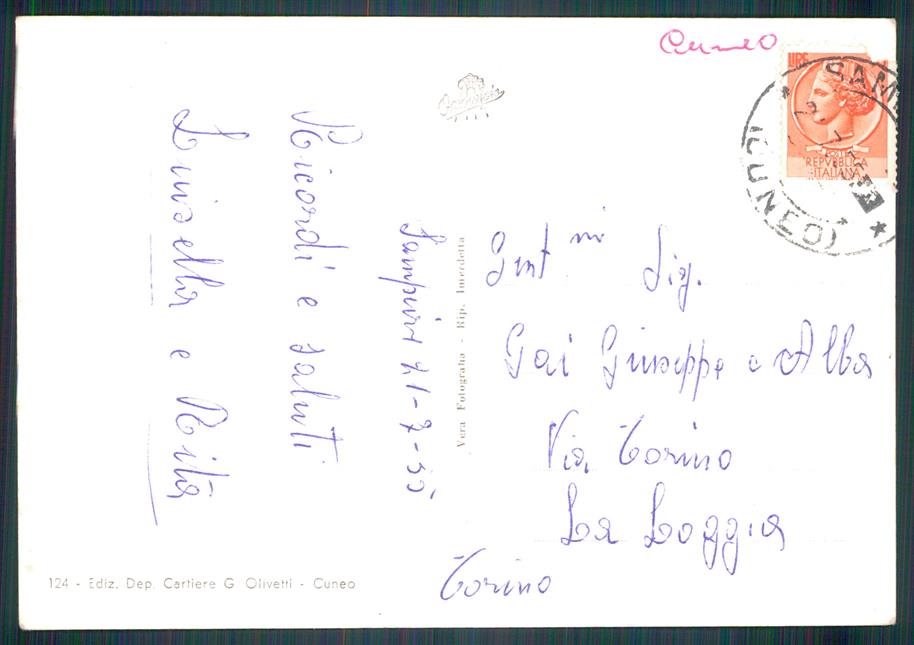 Cuneo
LIRE
POSTE
REPVBBLICA
ITALIANA
SAM
(CUNEO)
Ricordi e saluti
Luisella e Rita
Sampeire 21-7-55
Vera Fotografia - Rip. Interdetta
Gent mi Sig.
Gai Giuseppe e Alba
Via Torino
La Loggia
Torino
124 - Ediz. Dep. Cartiere G Olivetti - Cuneo